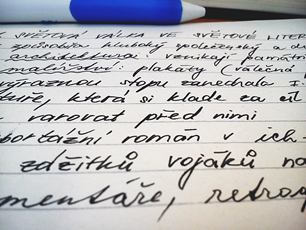 SVĚTOVÁ VÁLKA VE SVĚTOVÉ LITER
způsobila hluboký společenský a
architektura: vznikají památní
malířství: plakáty (válečná
výraznou stopu zanechala I.
která si klade za cíl
varovat před nimi
portážní román v ich-
zážitků vojáků na
mentáře, retros